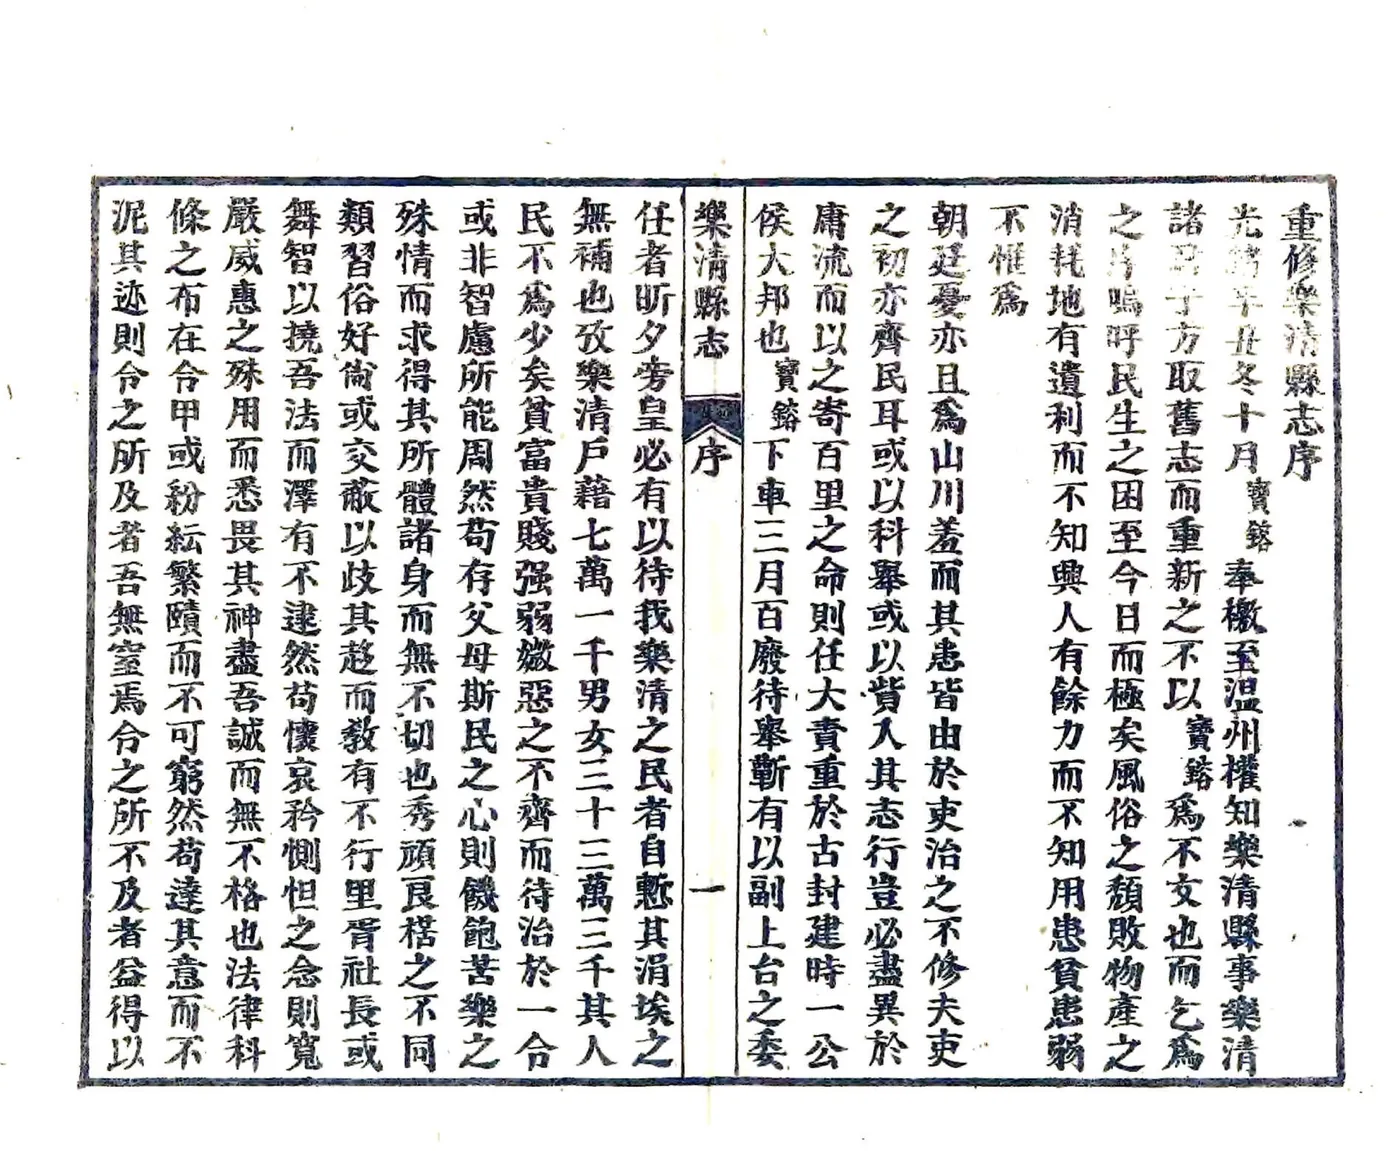 重修樂清縣志序
光緒辛丑冬十月寶鎔奉檄至温州權知樂清縣事樂清
諸君子方取舊志而重新之不以寶鎔爲不文也而乞爲
之序嗚呼民生之困至今日而極矣風俗之頹敗物產之
消耗地有遺利而不知興人有餘力而不知用患貧患弱
不惟爲
朝廷憂亦且爲山川羞而其患皆由於吏治之不修夫吏
之初亦齊民耳或以科舉或以貲入其志行豈必盡異於
庸流而以之寄百里之命則任大責重於古封建時一公
侯大邦也寶鎔下車三月百廢待舉蘄有以副上台之委
樂清縣志
序
一
任者昕夕旁皇必有以待我樂清之民者自慙其涓埃之
無補也攷樂清戶藉七萬一千男女三十三萬三千其人
民不爲少矣貧富貴賤强弱媺惡之不齊而待治於一令
或非智慮所能周然苟存父母斯民之心則饑飽苦樂之
殊情而求得其所體諸身而無不切也秀頑良楛之不同
類習俗好尙或交蔽以歧其趍而教有不行里胥社長或
舞智以撓吾法而澤有不逮然苟懷哀矜惻怛之念則寬
嚴威惠之殊用而悉畏其神盡吾誠而無不格也法律科
條之布在令甲或紛紜繁賾而不可窮然苟達其意而不
泥其迹則令之所及者吾無窒焉令之所不及者益得以